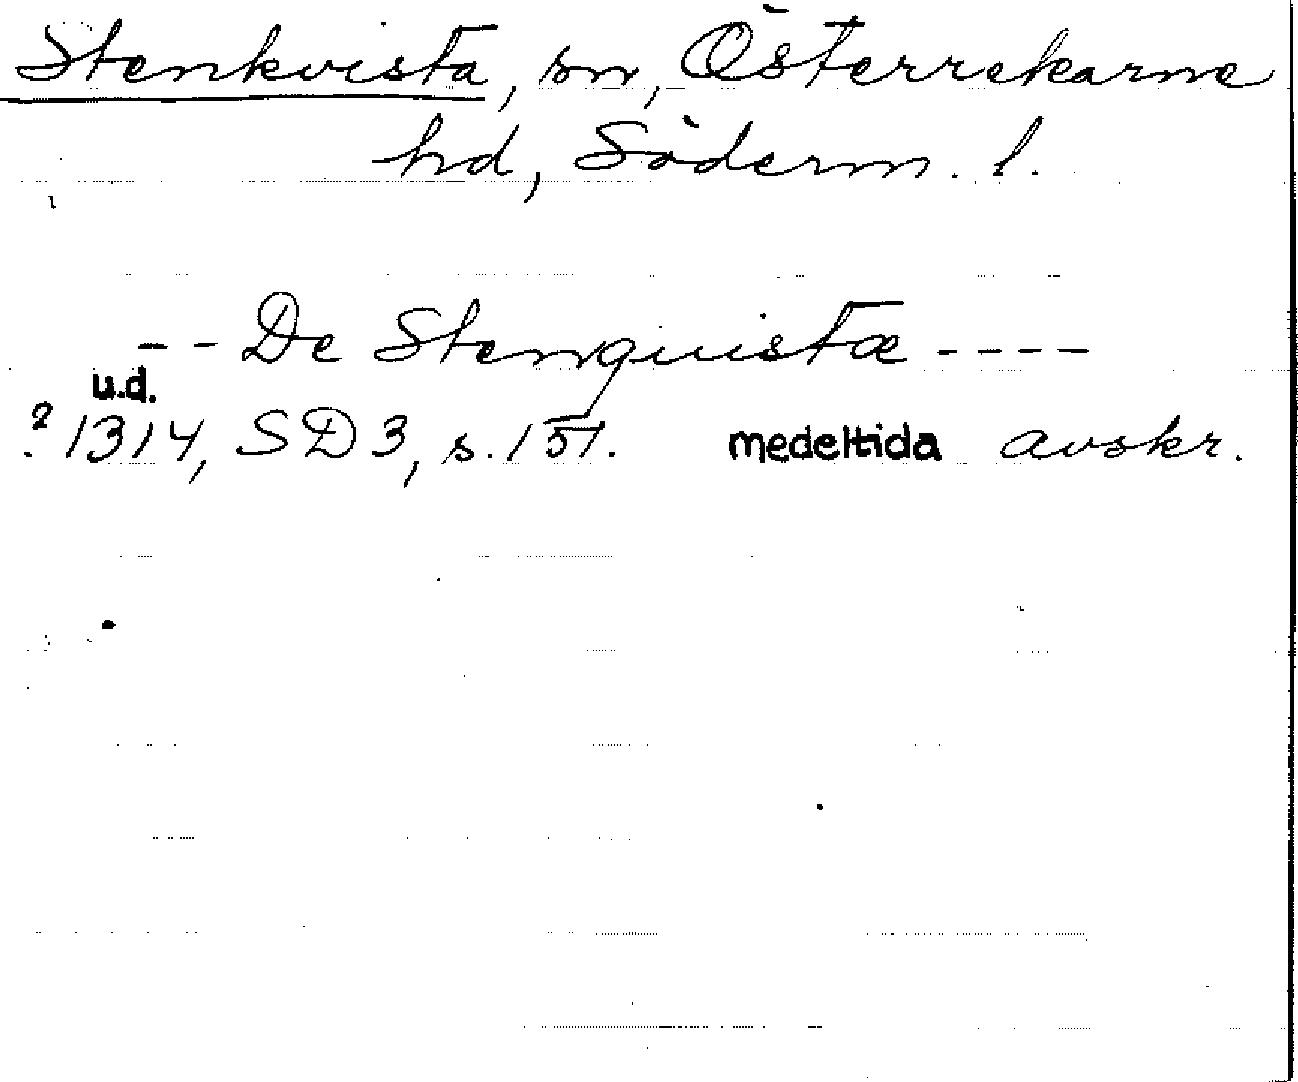 Stenkvista, sn, Österrekarne
hd, Söderm. l.
-- De Stenquistæ ----
u.d.
? 1314, SD 3, s. 151. medeltida avskr.